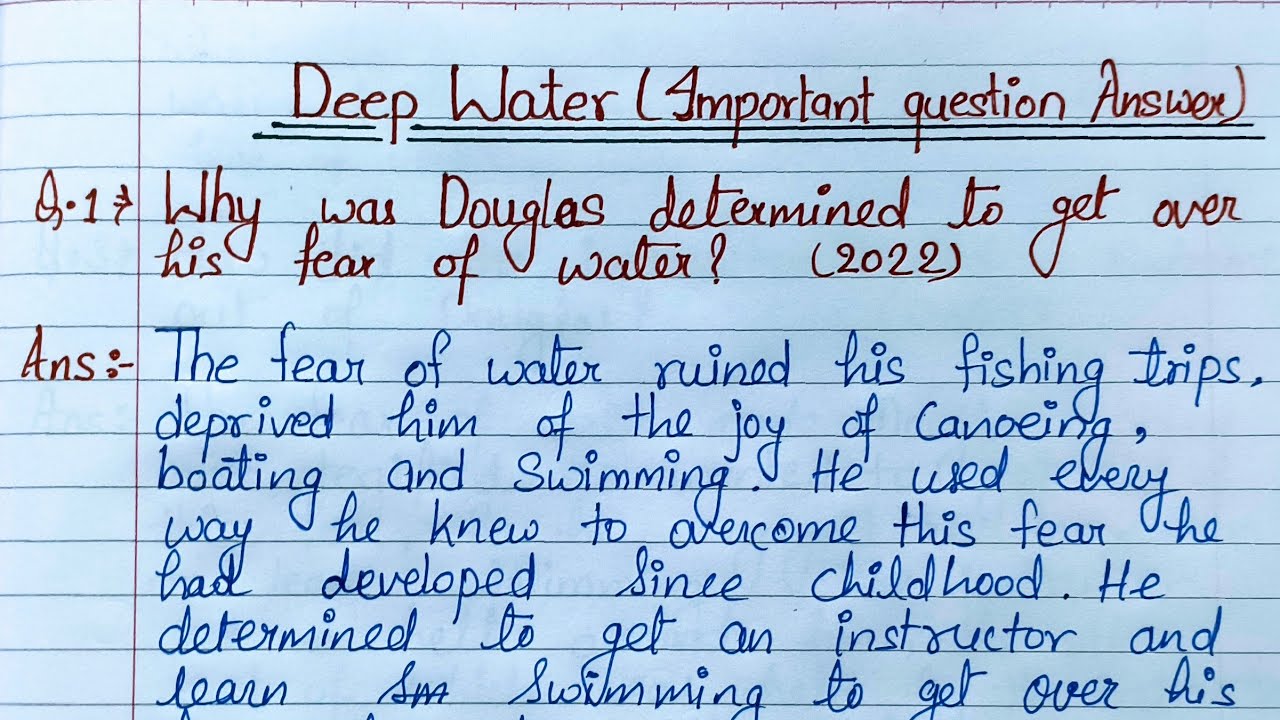 Deep Water (Important question Answer)
Q.1→ Why was Douglas determined to get over
his fear of water? (2022)
Ans:- The fear of water ruined his fishing trips,
deprived him of the joy of Canoeing,
boating and Swimming. He used every
way he knew to overcome this fear he
had developed since childhood. He
determined to get an instructor and
learn swimming to get over his